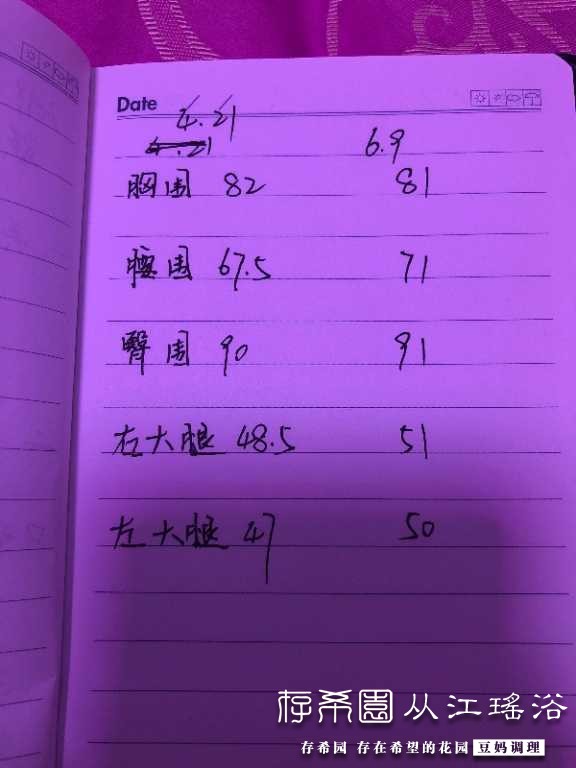 Date
4.21
4.21 6.9
胸围 82 81
腰围 67.5 71
臀围 90 91
右大腿 48.5 51
左大腿 47 50
存希園从江瑤浴
存希园 存在希望的花园 豆妈调理